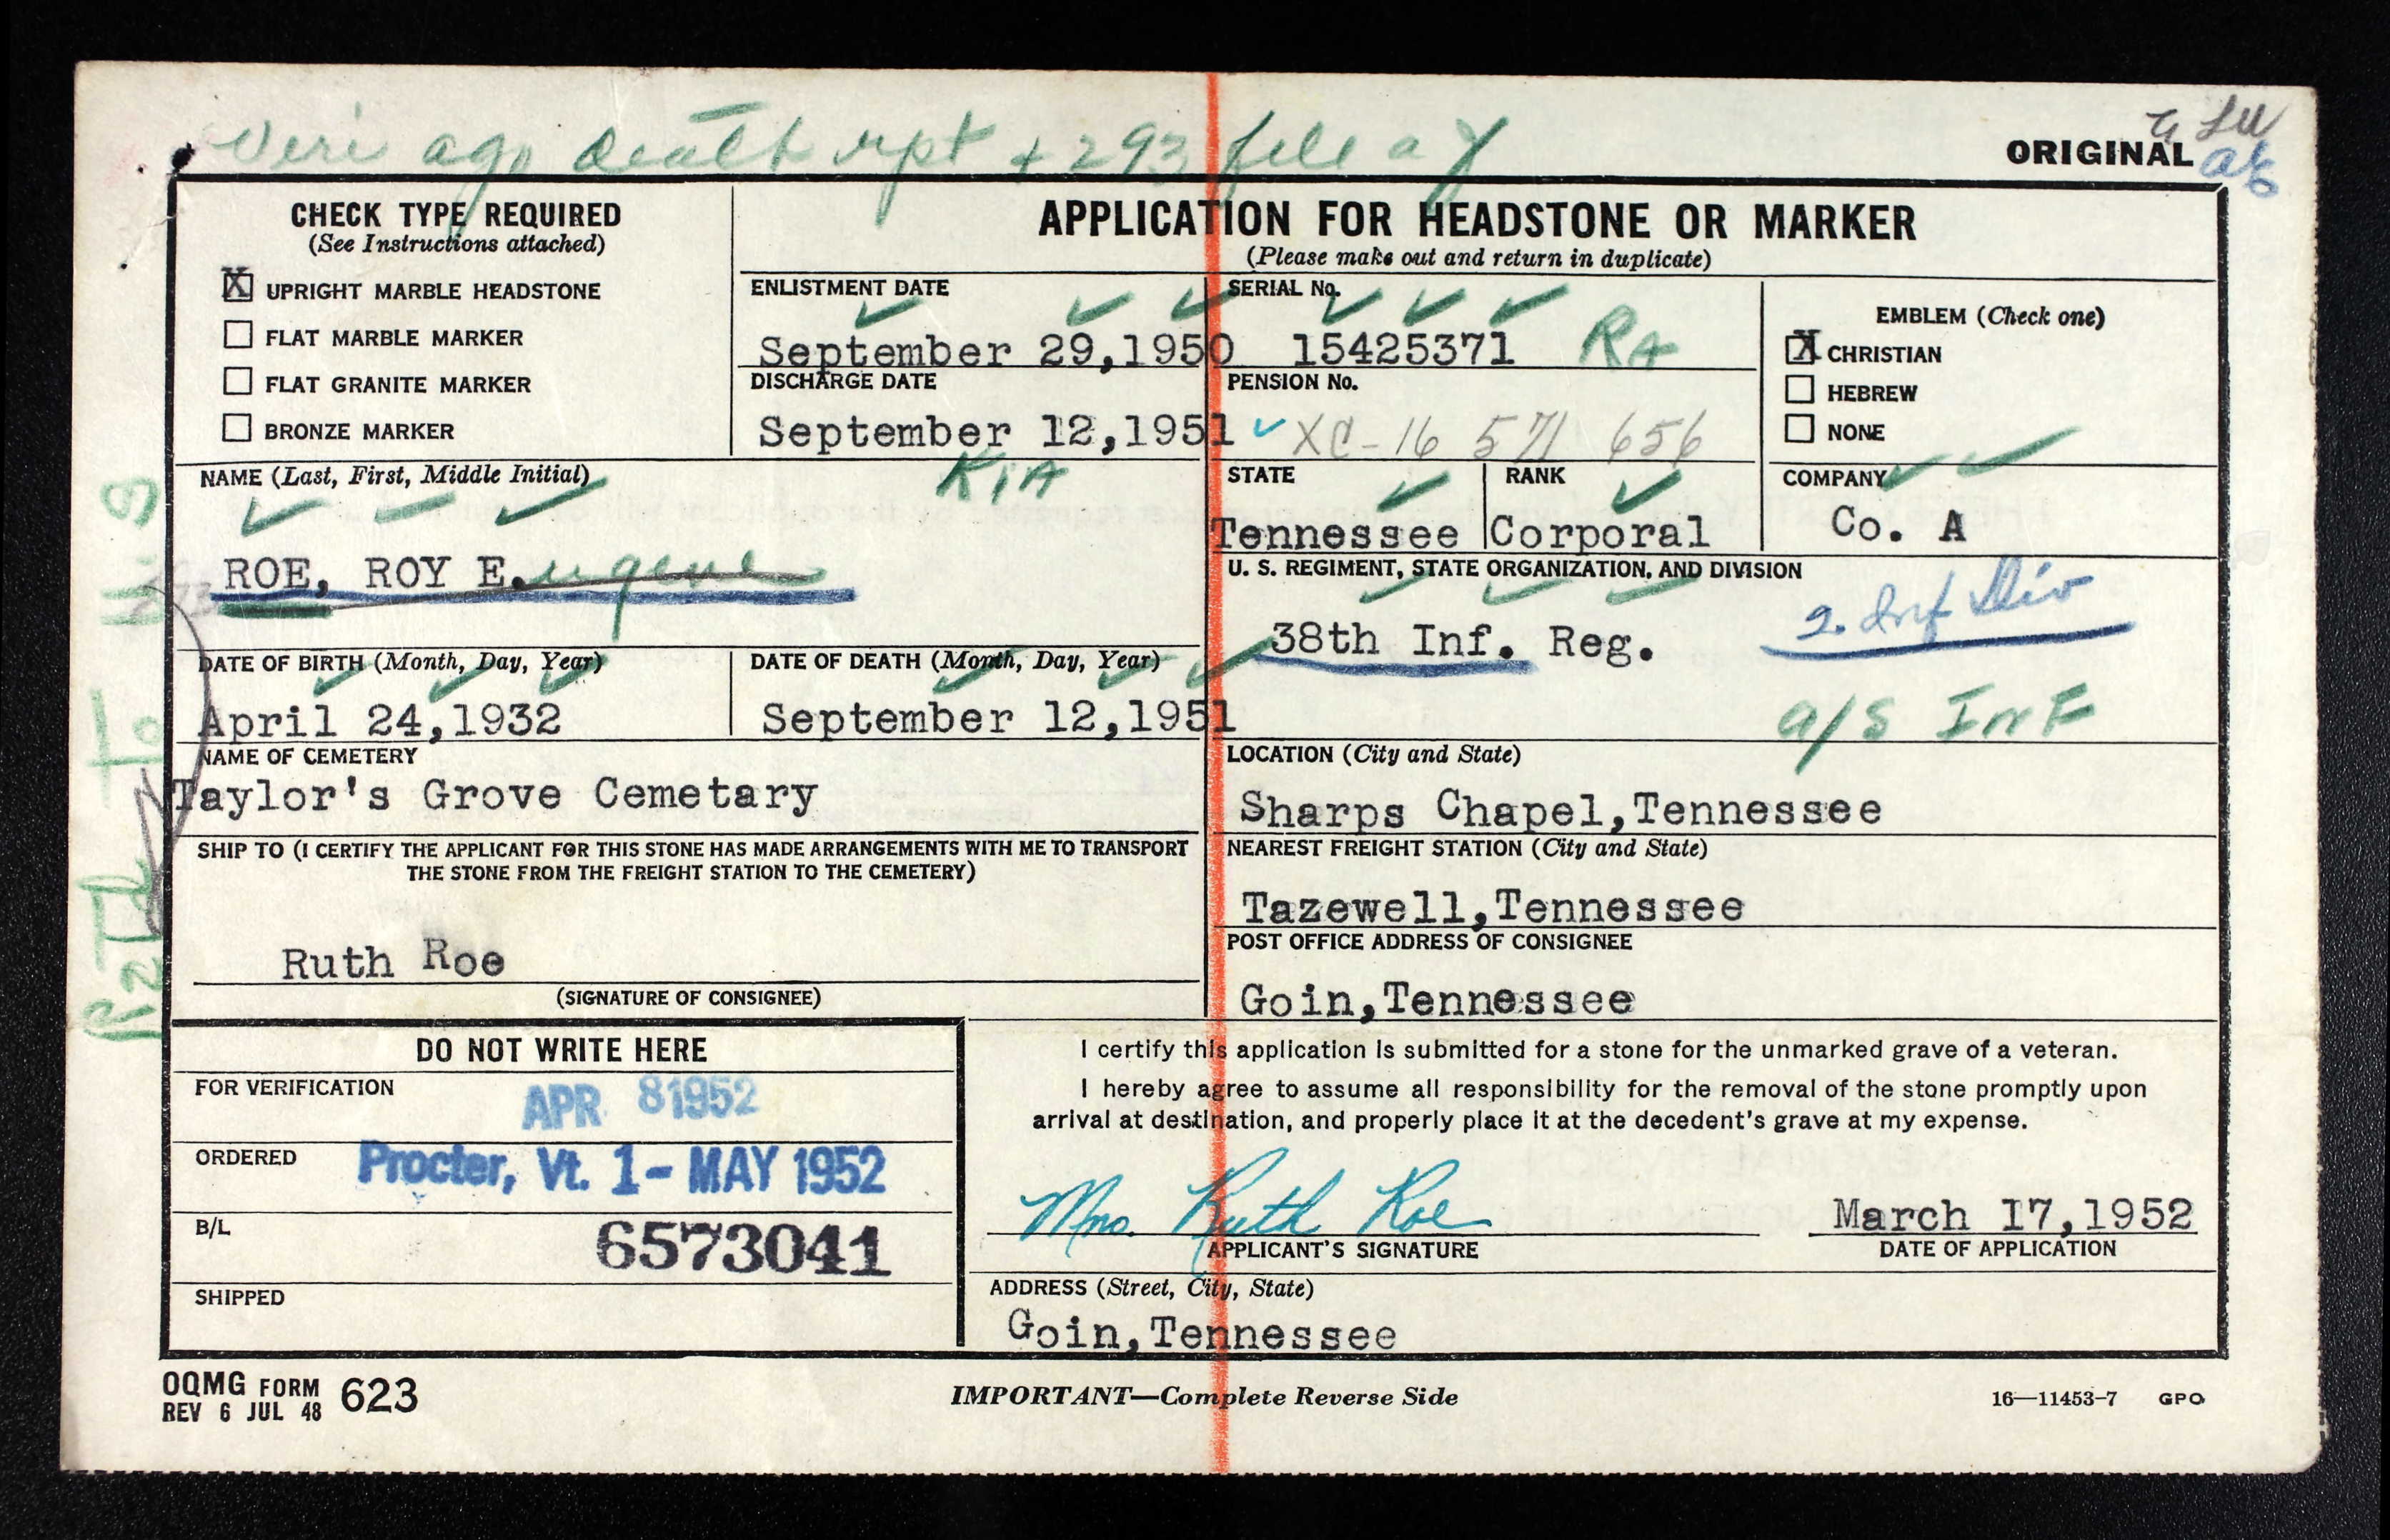 Veri ago death rpt + 293 file
ORIGINAL
CHECK TYPE REQUIRED
(See Instructions attached)
X UPRIGHT MARBLE HEADSTONE
FLAT MARBLE MARKER
FLAT GRANITE MARKER
BRONZE MARKER
APPLICATION FOR HEADSTONE OR MARKER
(Please make out and return in duplicate)
ENLISTMENT DATE
September 29,1950
SERIAL No.
15425371 RA
DISCHARGE DATE
September 12,1951
KIA
PENSION No.
XC-16 571 656
EMBLEM (Check one)
X CHRISTIAN
HEBREW
NONE
NAME (Last, First, Middle Initial)
ROE, ROY E.ugene
STATE
Tennessee
RANK
Corporal
COMPANY
Co. A
U. S. REGIMENT, STATE ORGANIZATION, AND DIVISION
38th Inf. Reg.
2. Inf Div
a/s Inf
DATE OF BIRTH (Month, Day, Year)
April 24,1932
DATE OF DEATH (Month, Day, Year)
September 12,1951
NAME OF CEMETERY
Taylor's Grove Cemetary
LOCATION (City and State)
Sharps Chapel,Tennessee
SHIP TO (I CERTIFY THE APPLICANT FOR THIS STONE HAS MADE ARRANGEMENTS WITH ME TO TRANSPORT
THE STONE FROM THE FREIGHT STATION TO THE CEMETERY)
Ruth Roe
(SIGNATURE OF CONSIGNEE)
NEAREST FREIGHT STATION (City and State)
Tazewell,Tennessee
POST OFFICE ADDRESS OF CONSIGNEE
Goin,Tennessee
DO NOT WRITE HERE
FOR VERIFICATION
APR 8 1952
ORDERED
Procter, Vt. 1- MAY 1952
B/L
6573041
SHIPPED
I certify this application is submitted for a stone for the unmarked grave of a veteran.
I hereby agree to assume all responsibility for the removal of the stone promptly upon
arrival at destination, and properly place it at the decedent's grave at my expense.
Mrs. Ruth Roe
APPLICANT'S SIGNATURE
March 17,1952
DATE OF APPLICATION
ADDRESS (Street, City, State)
Goin,Tennessee
OQMG FORM 623
REV 6 JUL 48
IMPORTANT—Complete Reverse Side
16—11453-7 GPO